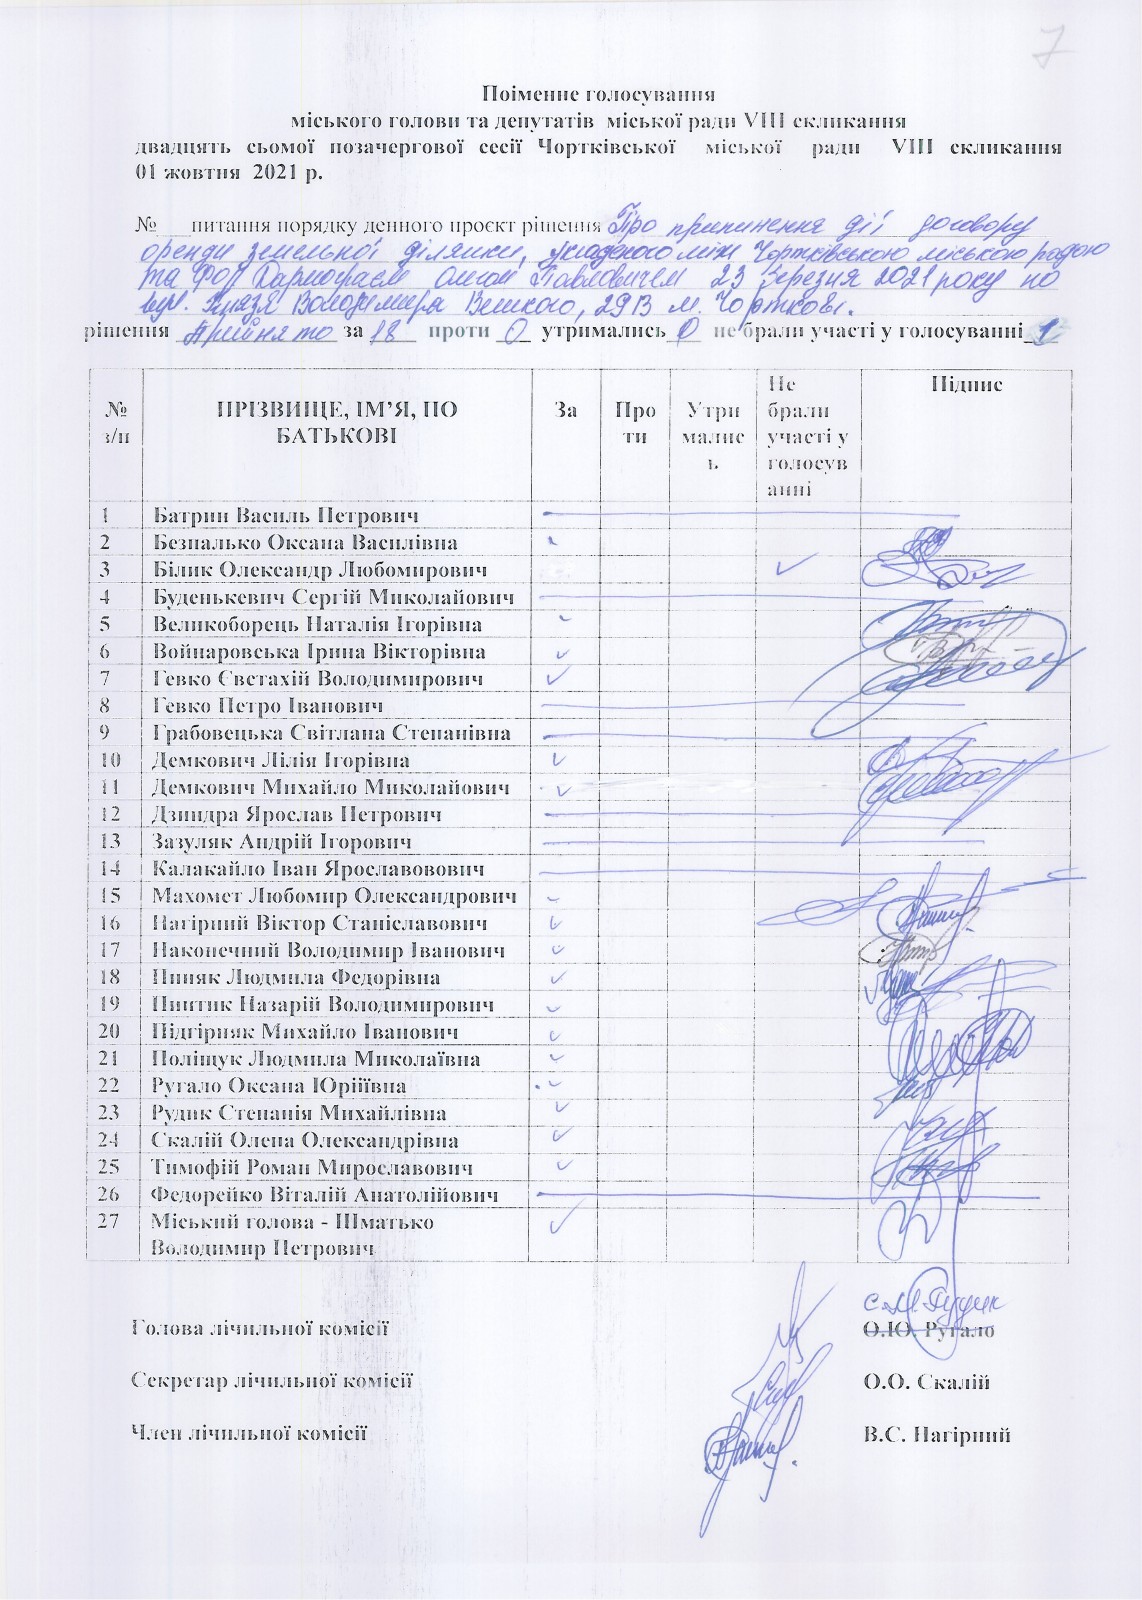 7
Поіменне голосування
міського голови та депутатів міської ради VIII скликання
двадцять сьомої позачергової сесії Чортківської міської ради VIII скликання
01 жовтня 2021 р.
№___питання порядку денного проєкт рішення Про припинення дії договору
оренди земельної ділянки, укладеного між Чортківською міською радою
та ФОП Дармограєм Павловичем 23 березня 2021 року по
вул. Князя Володимира Великого, 29В м. Чорткові.
рішення Прийнято за 18 проти 0 утримались 0 не брали участі у голосуванні 1
№ з/п ПРІЗВИЩЕ, ІМ’Я, ПО БАТЬКОВІ За Проти Утримались Не брали участі у голосуванні Підпис
1 Батрин Василь Петрович
2 Безпалько Оксана Василівна
3 Білик Олександр Любомирович
4 Буденькевич Сергій Миколайович
5 Великоборець Наталія Ігорівна
6 Войнаровська Ірина Вікторівна
7 Гевко Євстахій Володимирович
8 Гевко Петро Іванович
9 Грабовецька Світлана Степанівна
10 Демкович Лілія Ігорівна
11 Демкович Михайло Миколайович
12 Дзиндра Ярослав Петрович
13 Зазуляк Андрій Ігорович
14 Калакайло Іван Ярославовович
15 Махомет Любомир Олександрович
16 Нагірний Віктор Станіславович
17 Наконечний Володимир Іванович
18 Пиняк Людмила Федорівна
19 Пинтик Назарій Володимирович
20 Підгірняк Михайло Іванович
21 Поліщук Людмила Миколаївна
22 Ругало Оксана Юріїївна
23 Рудик Степанія Михайлівна
24 Скалій Олена Олександрівна
25 Тимофій Роман Мирославович
26 Федорейко Віталій Анатолійович
27 Міський голова - Шматько
Володимир Петрович
С.М. Рудик
Голова лічильної комісії О.Ю. Ругало
Секретар лічильної комісії О.О. Скалій
Член лічильної комісії В.С. Нагірний